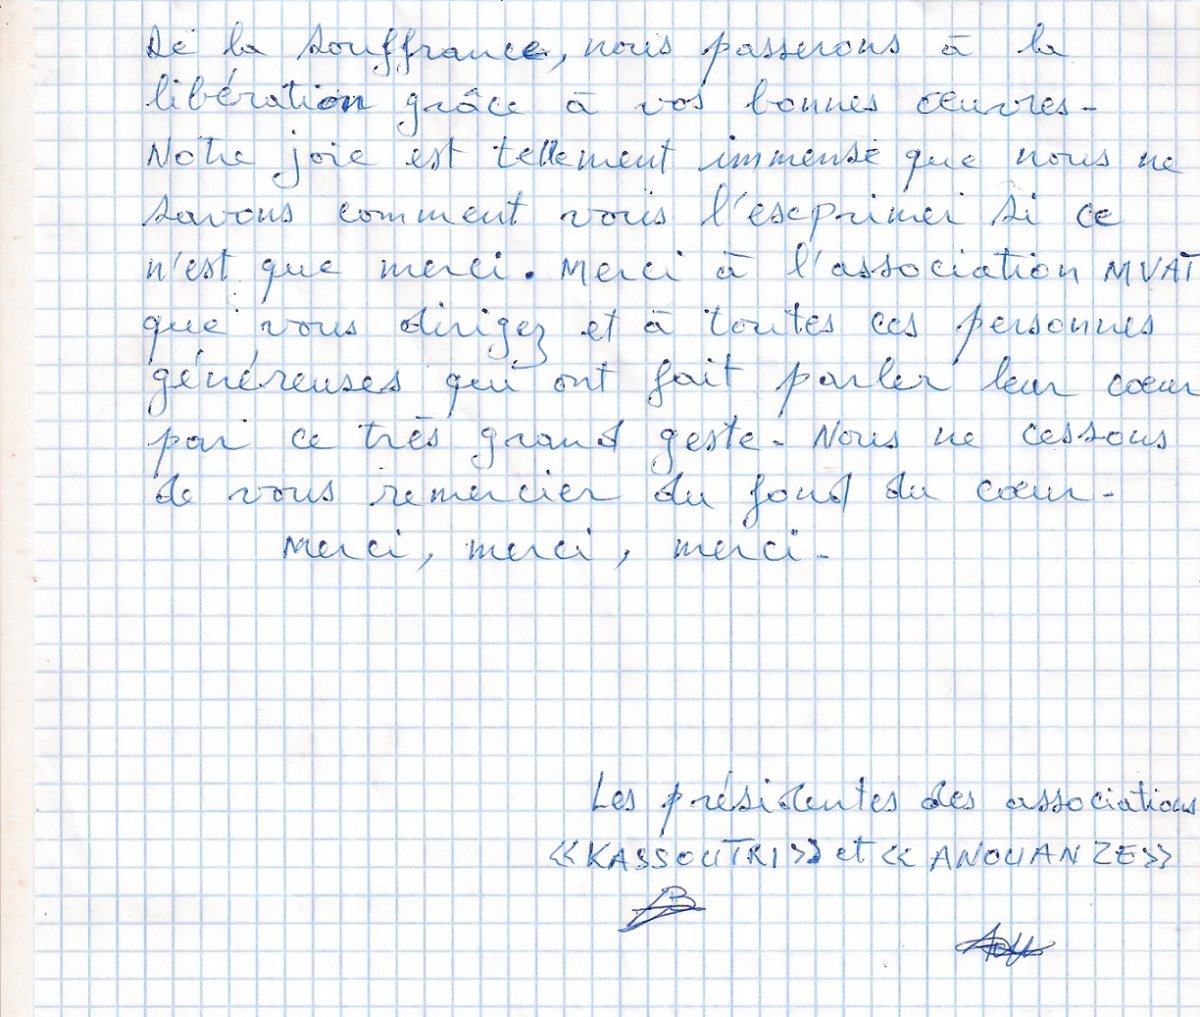 De la souffrance, nous passerons à la
libération grâce à vos bonnes œuvres-
Notre joie est tellement immense que nous ne
savons comment vous l'exprimer si ce
n'est que merci. Merci à l'association MVAT
que vous dirigez et à toutes ces personnes
généreuses qui ont fait parler leur cœur
par ce très grand geste- Nous ne cessons
de vous remercier du fond du cœur-
Merci, merci, merci-
Les présidentes des associations
«KASSOUTRI» et «ANOUANZE»